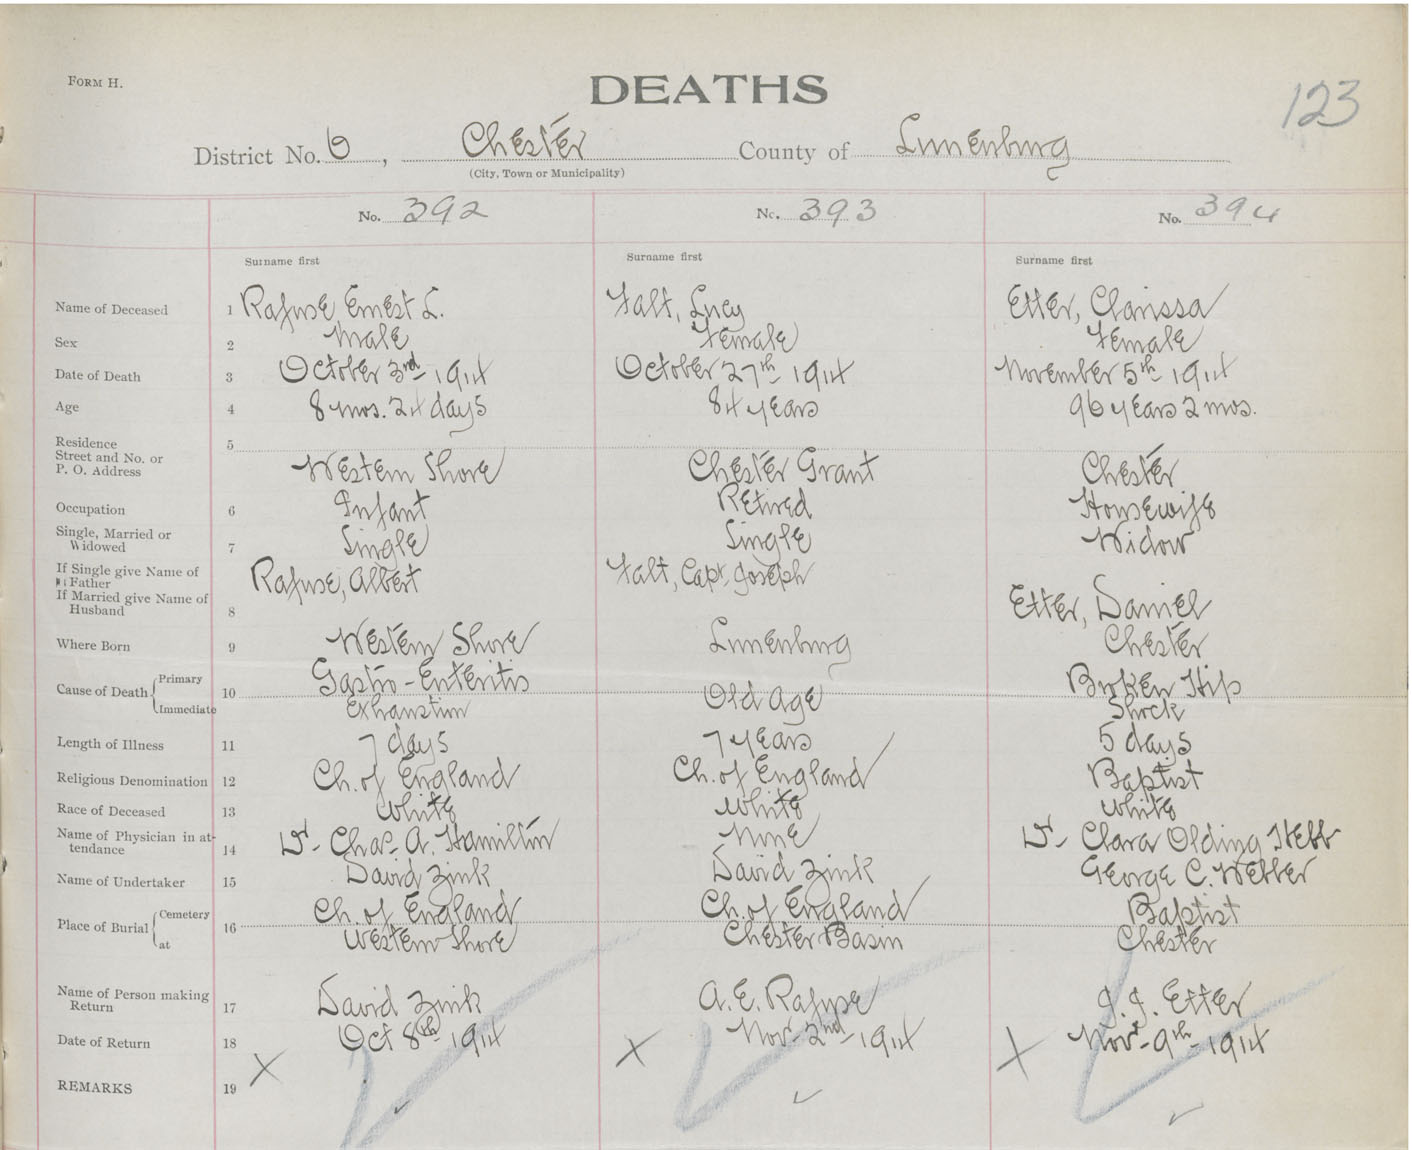 FORM H.
DEATHS
123
District No. 6, Chester County of Lunenburg
(City, Town or Municipality)
No. 392 No. 393 No. 394
Surname first Surname first Surname first
Name of Deceased 1 Rafuse, Ernest L. Falt, Lucy Etter, Clarissa
Sex 2 Male Female Female
Date of Death 3 October 3rd 1914 October 27th 1914 November 5th 1914
Age 4 8 mos. 24 days 84 years 96 years 2 mos.
Residence 5
Street and No. or
P. O. Address Western Shore Chester Grant Chester
Occupation 6 Infant Retired Housewife
Single, Married or
Widowed 7 Single Single Widow
If Single give Name of
Father Rafuse, Albert Falt, Capt. Joseph
If Married give Name of
Husband 8 Etter, Daniel
Where Born 9 Western Shore Lunenburg Chester
Primary Gastro-Enteritis Broken Hip
Cause of Death 10 Old Age
Immediate Exhaustion Shock
Length of Illness 11 7 days 7 years 5 days
Religious Denomination 12 Ch. of England Ch. of England Baptist
Race of Deceased 13 White White White
Name of Physician in at-
tendance 14 Dr. Chas. A. Hamilton None Dr. Clara Olding Hebb
Name of Undertaker 15 David Zink David Zink George C. Webber
Cemetery Ch. of England Ch. of England Baptist
Place of Burial 16
at Western Shore Chester Basin Chester
Name of Person making
Return 17 David Zink A. E. Rafuse J. J. Etter
Date of Return 18 Oct 8th 1914 Nov. 2nd 1914 Nov. 9th 1914
REMARKS 19